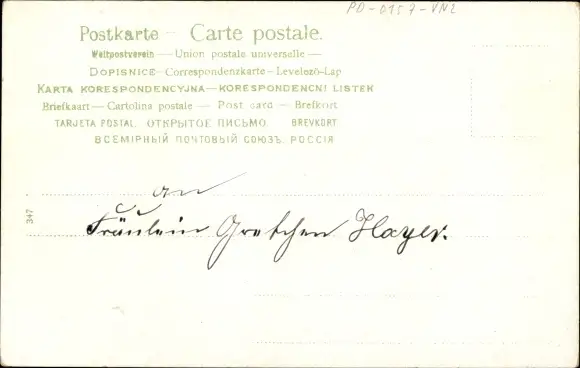 PD-0157-VN2
Postkarte – Carte postale.
Weltpostverein — Union postale universelle —
DOPISNICE — Correspondenzkarte — Levelező-Lap
KARTA KORESPONDENCYJNA — KORESPONDENČNÍ LISTEK
Briefkaart — Cartolina postale — Post card — Brefkort
TARJETA POSTAL. ОТКРЫТОЕ ПИСЬМО. BREVKORT
ВСЕМІРНЫЙ ПОЧТОВЫЙ СОЮЗЪ. РОССІЯ
an
Fräulein Gretchen Hayer.
347